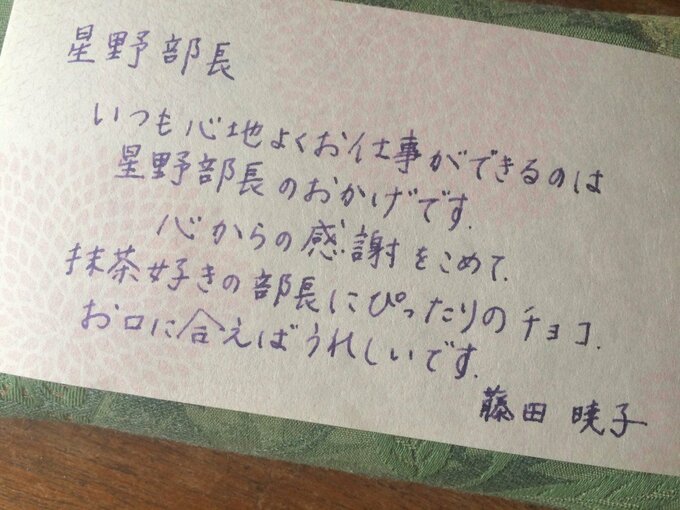 星野部長
いつも心地よくお仕事ができるのは
星野部長のおかげです.
心からの感謝をこめて.
抹茶好きの部長にぴったりのチョコ.
お口に合えばうれしいです.
藤田 暁子